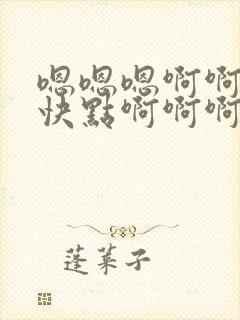 嗯嗯嗯啊啊
快點啊啊啊
蓬萊子